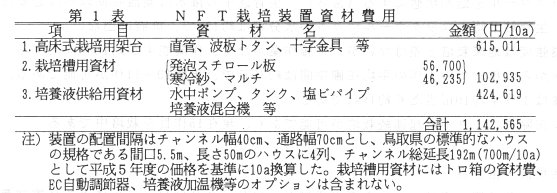 第1表 NFT栽培装置資材費用
項目 資材名 金額(円/10a)
1.高床式栽培用架台 直管、波板トタン、十字金具 等 615,011
2.栽培槽用資材 {発泡スチロール板 56,700}
{寒冷紗、マルチ 46,235} 102,935
3.培養液供給用資材 水中ポンプ、タンク、塩ビパイプ 424,619
培養液混合機 等
合計 1,142,565
注)装置の配置間隔はチャンネル幅40cm、通路幅70cmとし、鳥取県の標準的なハウス
の規格である間口5.5m、長さ50mのハウスに4列、チャンネル総延長192m(700m/10a)
として平成5年度の価格を基準に10a換算した。栽培槽用資材にはトロ箱の資材費、
EC自動調節器、培養液加温機等のオプションは含まれない。